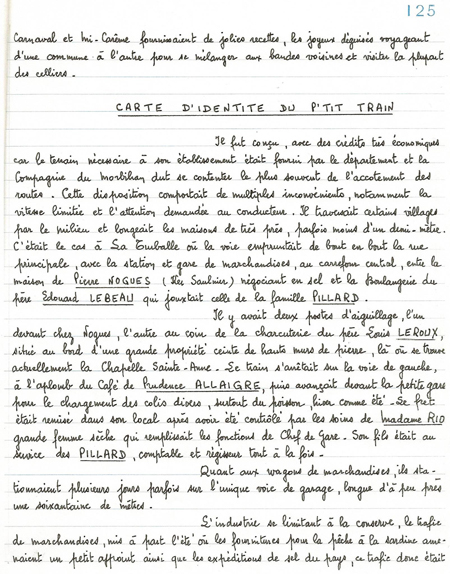 125
Carnaval et Mi-Carême fournissaient de jolies recettes, les joyeux déguisés voyageant
d'une commune à l'autre pour se mélanger aux bandes voisines et visiter la plupart
des celliers.
CARTE D'IDENTITE DU P'TIT TRAIN
Il fut conçu, avec des crédits très économiques
car le terrain nécessaire à son établissement était fourni par le département et la
Compagnie du Morbihan dut se contenter le plus souvent de l'accotement des
routes. Cette disposition comportait de multiples inconvénients, notamment la
vitesse limitée et l'attention demandée au conducteur. Il traversait certains villages
par le milieu et longeait les maisons de très près, parfois moins d'un demi-mètre.
C'était le cas à La Turballe où la voie empruntait de bout en bout la rue
principale, avec la station et gare de marchandises, au carrefour central, entre la
maison de Pierre NOGUES (Ker Saulnier) négociant en sel et la Boulangerie du
père Edouard LEBEAU qui jouxtait celle de la famille PILLARD.
Il y avait deux postes d'aiguillage, l'un
devant chez Nogues, l'autre au coin de la charcuterie du père Louis LEROUX,
situé au bord d'une grande propriété ceinte de hauts murs de pierre, là où se trouve
actuellement la Chapelle Sainte-Anne. Le train s'arrêtait sur la voie de gauche,
à l'aplomb du Café de Prudence ALLAIGRE, puis avançait devant la petite gare
pour le chargement des colis divers, surtout du poisson, hiver comme été. Le fret
était remisé dans son local après avoir été contrôlé par les soins de Madame RIO
grande femme sèche qui remplissait les fonctions de Chef de gare. Son fils était au
service des PILLARD, comptable et régisseur tout à la fois.
Quant aux wagons de marchandises, ils sta-
tionnaient plusieurs jours parfois sur l'unique voie de garage, longue d'à peu près
une soixantaine de mètres.
L'industrie se limitant à la conserve, le trafic
de marchandises, mis à part l'été où les fournitures pour la pêche à la sardine ame-
naient un petit appoint ainsi que les expéditions de sel du pays, ce trafic donc était